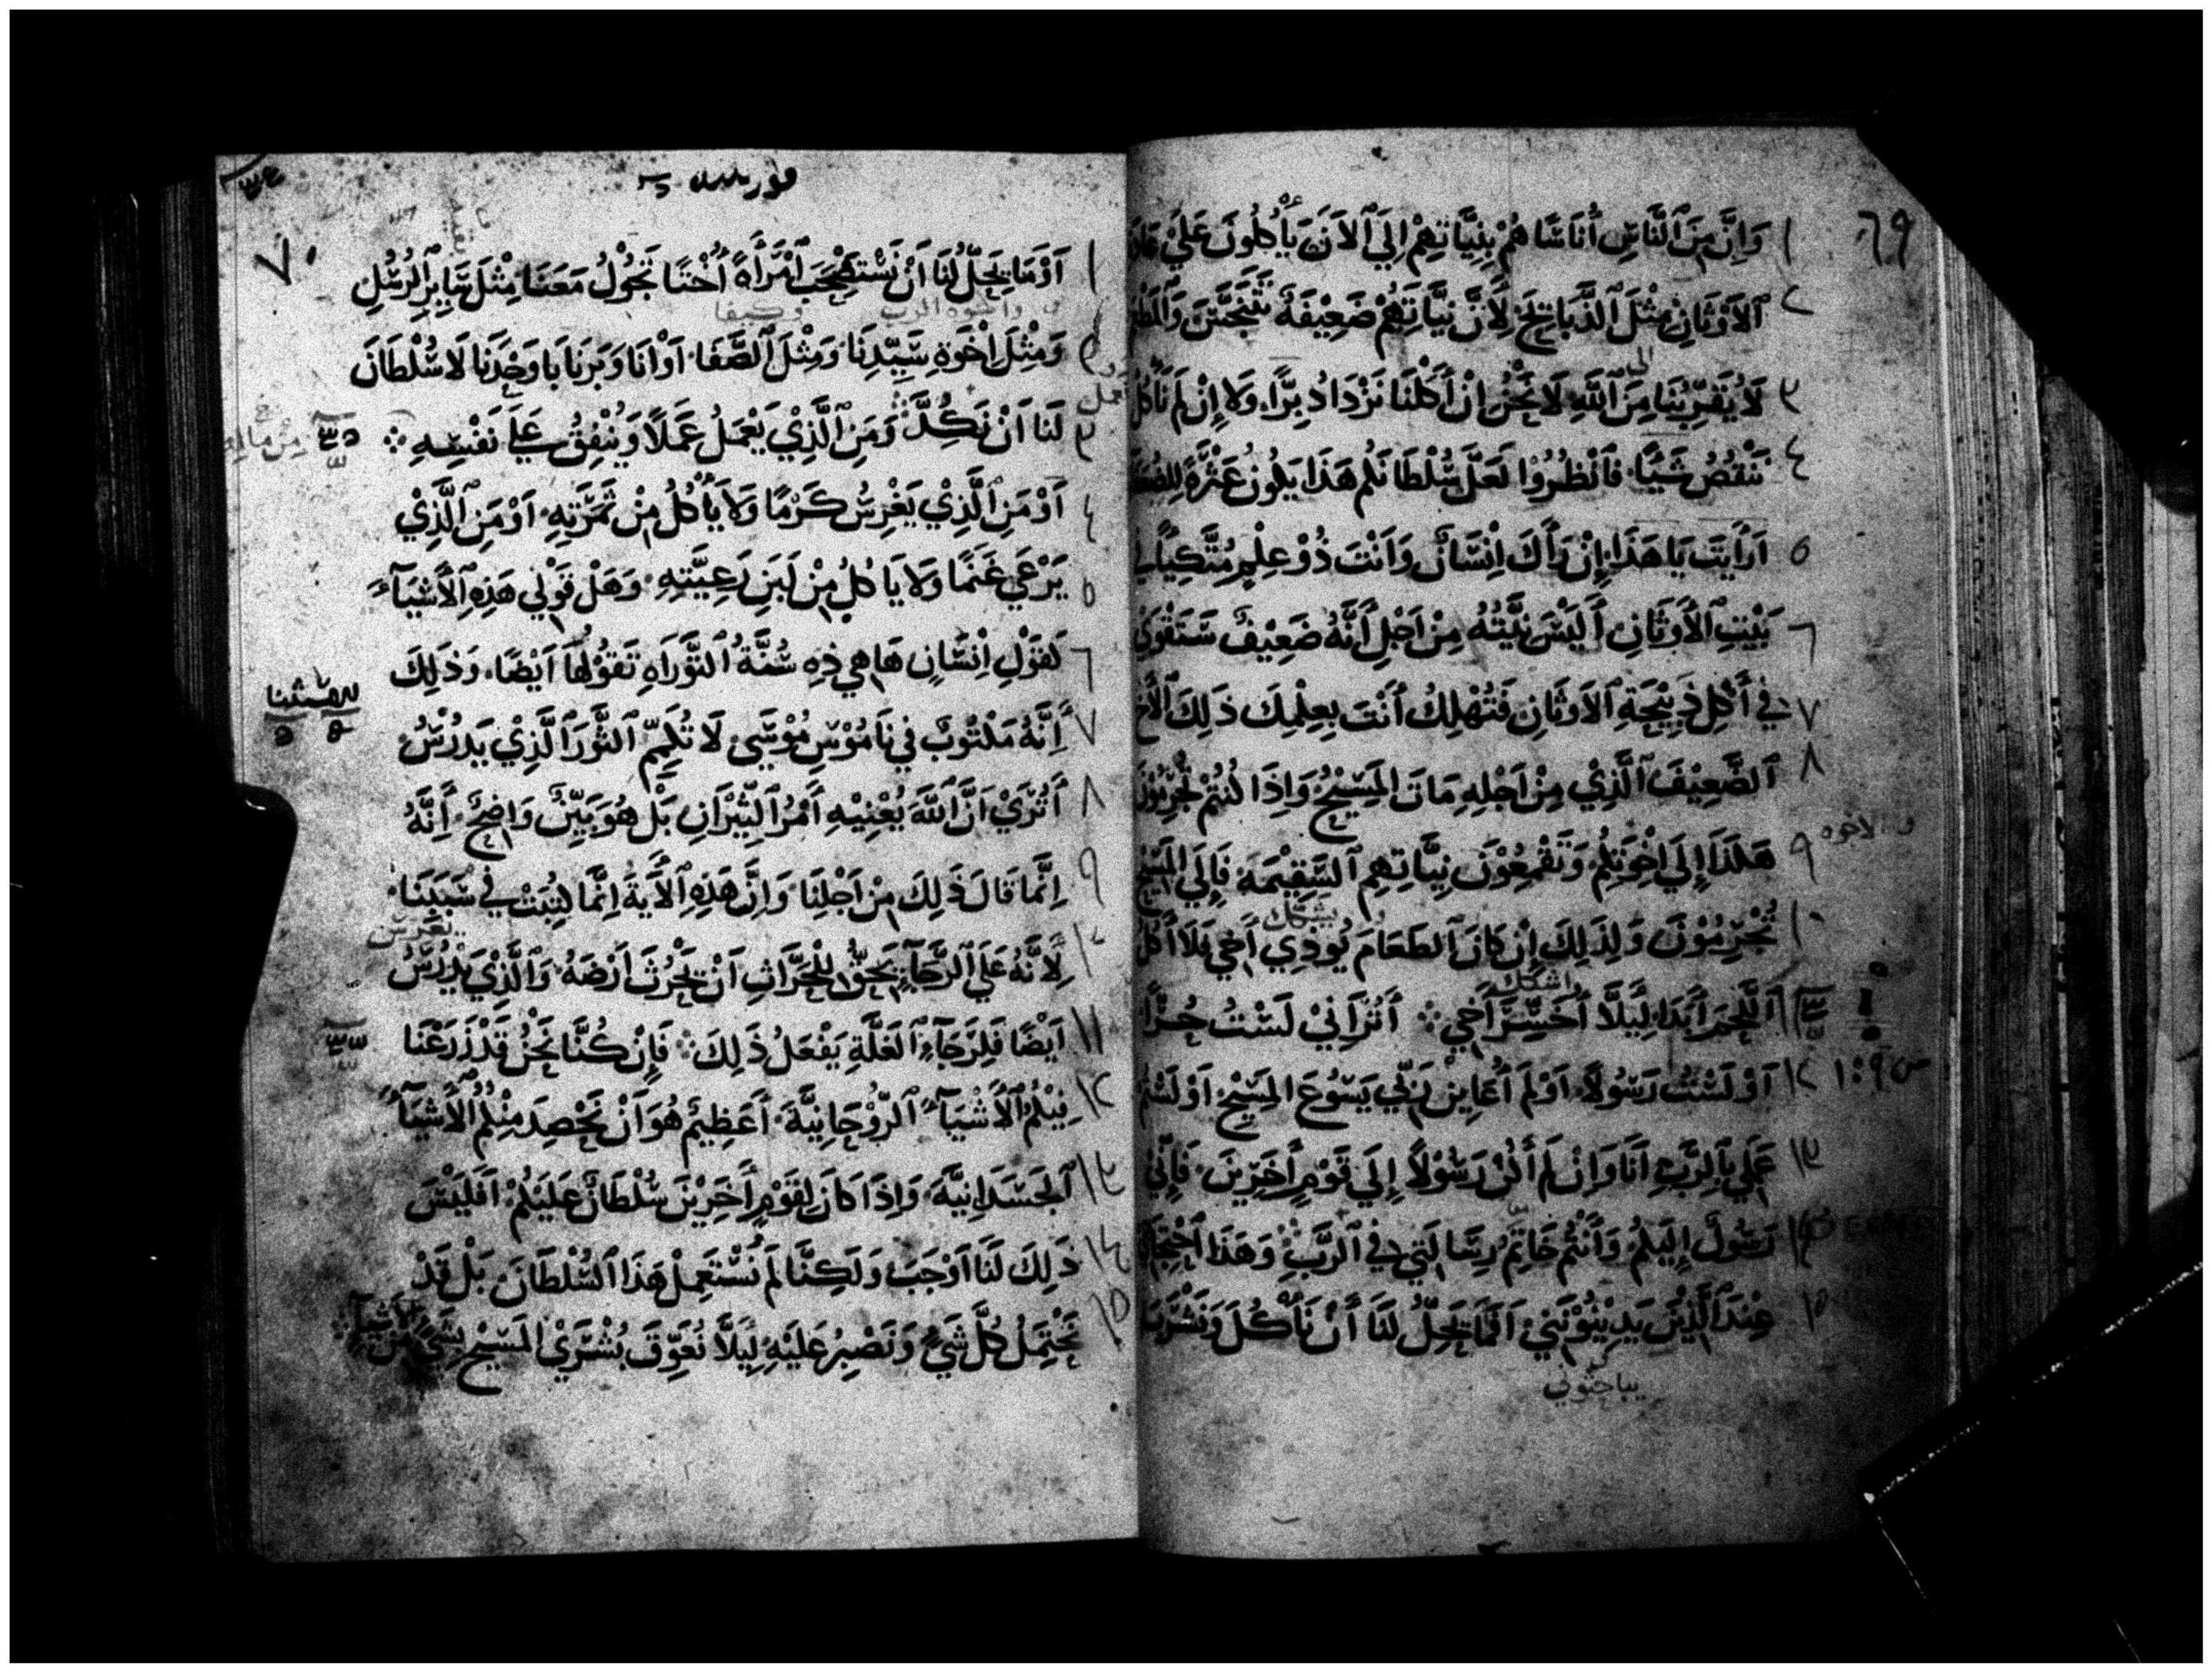 ٦٩
١ وَاِنَّ مِنَ ٱلنَّاسِ أُنَاسًا هُمْ بِنِيَّاتِهِمْ اِلَي ٱلاَنَ يَأْكُلُونَ عَلَيْ
٢ ٱلاَوْثَانِ مِثْلَ ٱلذَّبَايِحَ لِأَنَّ نِيَّاتِهُمْ ضَعِيْفَةٌ تَتَنَجَّسَ
الى
٣ لاَ يُقَرِّبُنَا مِنَ ٱللَّهِ لاَ نَحْنُ اِنْ أَكَلْنَا نَزْدَادُ بِرًّا وَلا إِنْ لَمْ نَأْكُل
٤ نَنْقُصُ شَيًا فَٱنْظُرُوْا لَعَلَّ سُلْطَانَكُم هَذَا يَكُونُ عَثْرَةً
٥ اَرَأَيْتَ يَا هَذَا إِنْ رَأَكَ اِنْسَانٌ وَاَنْتَ ذُوْ عِلْمٍ مُتَّكِيًا فِي
٦ بَيْتِ ٱلأَوثَانِ أَلَيْسَ نِيَّتُهُ مِنْ اَجْلِ أَنَّهُ ضَعِيْفٌ سَتَقْوَي
٧ فِي أَكْلِ ذَبِيْحَةِ ٱلاَوثَانِ فَتُهْلِكُ أَنْتَ بِعِلْمِكَ ذَلِكَ ٱلأَخَ
٨ ٱلضَّعِيْفَ ٱلَّذِيْ مِنْ اَجْلِهِ مَاتَ المَسِيْحُ وَاِذَا كُنتُمْ تُجْرِمُوْنَ
والاخوه
٩ هَكَذَا إِلَي اِخْوَتِكُمْ وَتَقْمَعُوْنَ نِيَّاتِهِمِ ٱلسَّقِيْمَةَ فَإِلَي المَسِيْحِ
يشكك
١٠ تُجْرِمُوْنَ وَلِذَلِكَ اِنْ كَانَ ٱلطَعَامَ يُوذِي أَخِي فَلاَ أَكُلُ
اشكك
١١ ٱللَّحْمَ أَبَدًا لِيَلَّا أُخَسِّرَ أَخِي ܀ أَتُرَانِيْ لَسْتُ حُرًّا
ص ٩:١
١٢ اَوْ لَسْتُ رَسُولاً اَوْ لَمْ أُعَايِنْ رَبِّي يَسُوعَ المَسِيْحِ اَوْ لَسْتُمْ
١٣ عَمَلِي بِٱلرَّبِّ أَنَا وَاِنْ لَمْ أَكُنْ رَسُوْلاً إِلَي قَوْمٍ أَخَرِيْنَ فَإِنِّي
١٤ رَسُولٌ إِلَيكُمْ وَأَنْتُمْ خَاتِمُ رِسَالَتِي فِي ٱلرَّبِّ وَهَذَا ٱحْتِجَاجِي
١٥ عِنْدَ ٱلَّذِيْنَ يَدِيْنُوْنَنِي اَفَمَا يَحِلُّ لَنَا أَنْ نَأْكُلَ وَنَشْرَبَ
يباحثوني
٧٠
١ اَوْمَا يَحِلُّ لَنَا اَنْ نَسْتَصْحِبَ ٱمْرَأَةً أُخْتًا تَجُوْلُ مَعَنَا مِثْلَ سَايِرِ ٱلرُسُلِ
واخوه الرب وكيفا
٢ وَمِثْلَ اِخْوَةِ سَيِّدِنَا وَمِثْلَ ٱلصَّفَا اَوْ اَنَا وَبَرنَابَا وَحْدَنَا لاَ سُلْطَانَ
٣ لَنَا اَنْ نَكِدَّ وَمَنِ ٱلَّذِيْ يَعْمَلُ عَمَلًا وَيُنْفِقُ عَلَي نَفْسِهِ ܀
من ماله
٤ اَوْ مَنِ ٱلَّذِيْ يَغْرِسُ كَرْمًا وَلاَ يَأْكُلُ مِنْ ثَمَرَتِهِ اَوْ مَنِ ٱلَّذِيْ
٥ يَرْعَي غَنَمًا وَلاَ يَاكُلُ مِنْ لَبَنِ رَعِيَّتِهِ وَهَلْ قَوْلِي هَذِهِ ٱلأَشْيَآءَ
٦ كَقَوْلِ اِنْسَانٍ هَاهِي ذِهِ سُنَّةُ ٱلتَّوْرَاهِ تَقُوْلُهَا اَيْضًا وَذَلِكَ
٧ أَنَّهُ مَكْتُوْبٌ فِي نَامُوْسِ مُوْسَي لاَ تُكِمَّ ٱلثَّوْرَ ٱلَّذِيْ يَدْرُسُ
٨ أَتُرَيْ اَنَّ ٱللَّهَ يُعْنِيْهِ أَمْرُ ٱلثِّيْرَانِ بَلْ هُوَ بَيِّنٌ وَاضِحٌ أَنَّهُ
٩ اِنَّمَا قَالَ ذَلِكَ مِنْ اَجْلِنَا وَاِنَّ هَذِهِ ٱلأَيَةَ اِنَّمَا كُتِبَتْ فِي سَبَبِنَا
١٠ لِأَنَّهُ عَلَي ٱلرَّجَآءِ يَحِقُّ لِلْحَرَّاثِ اَنْ يَحْرُثَ اَرْضَهُ وَٱلَّذِيْ يَدْرُسُ
١١ اَيْضًا فَلِرَجَآءِ ٱلغَلَّةِ يَفْعَلُ ذَلِكَ فَإِنْ كُنَّا نَحْنُ قَدْ زَرَعْنَا
١٢ فِيْكُمُ ٱلأَشْيَآءَ ٱلرُّوْحَانِيَّةَ أَعَظِيْمٌ هُوَ اَنْ نَحْصِدَ مِنْكُمُ ٱلأَشْيَآءَ
١٣ ٱلجَسَدَانِيَّةَ وَاِذَا كَانَ لِقَوْمٍ أَخَرِيْنَ سُلْطَانٌ عَلَيْكُمْ اَفَلَيْسَ
١٤ ذَلِكَ لَنَا اَوْجَبَ وَلَكِنَّا لَمْ نَسْتَعْمِلْ هَذَا ٱلسُّلْطَانَ بَلْ قَدْ
١٥ نَحْتَمِلُ كُلَّ شَيءٍ وَنَصْبِرُ عَلَيْهِ لِيَلَّا نُعَوِّقَ بُشْرَيْ المَسِيْحِ بِشَيءٍ مِنَ ٱلأَشْيَآءِ